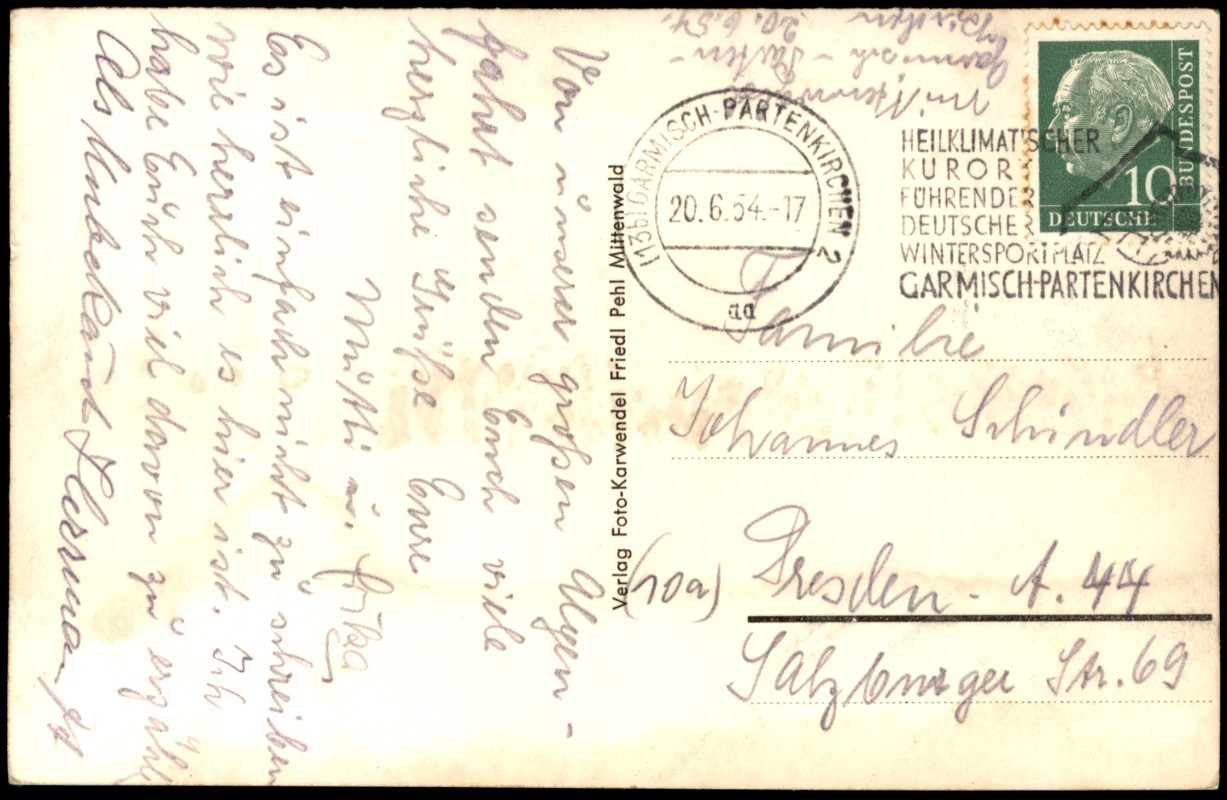 Mittenwald
Garmisch - Parten-
kirchen
20.6.54.
Von unserer großen Alpen-
fahrt senden Euch viele
herzliche Grüße Eure
Mutti u.
Es ist einfach nicht zu schreiben
wie herrlich es hier ist. Ich
habe Euch viel davon zu erzähl
Als Unbekannt
Verlag Foto-Karwendel Friedl Pehl Mittenwald
(13b) GARMISCH-PARTENKIRCHEN 2
20.6.54.-17
aa
HEILKLIMATISCHER
KURORT
FÜHRENDER
DEUTSCHER
WINTERSPORTPLATZ
GARMISCH-PARTENKIRCHEN
10
DEUTSCHE
BUNDESPOST
Familie
Johannes Schindler
(10a) Dresden - A. 44
Salzburger Str. 69